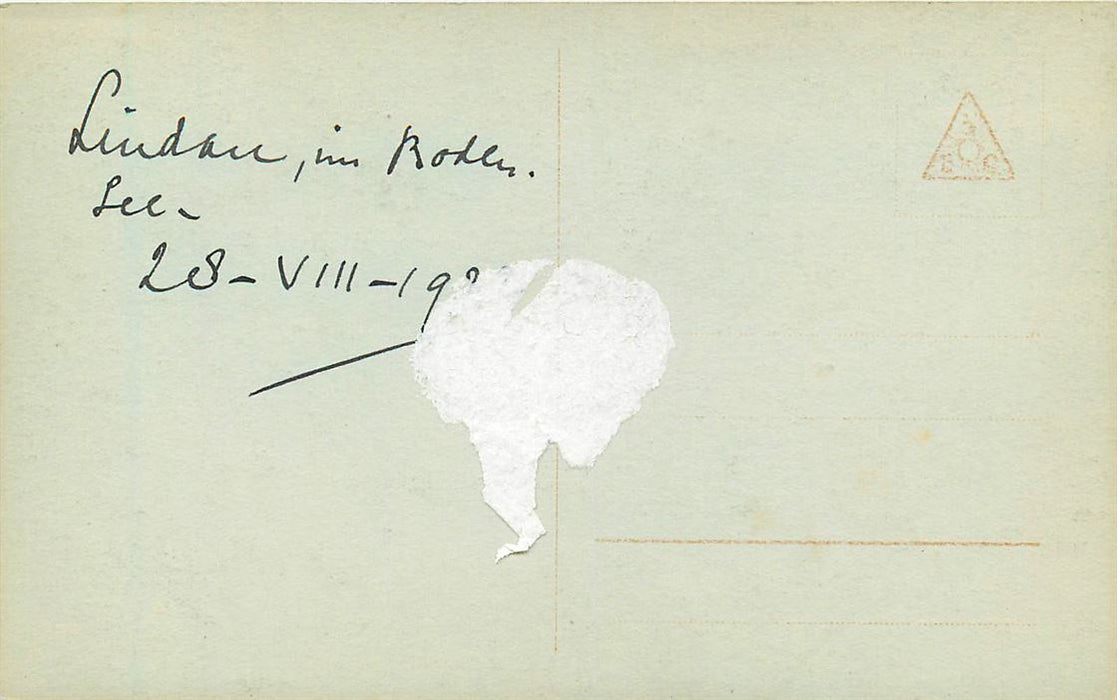 Lindau, im Boden.
See-
28-VIII-19